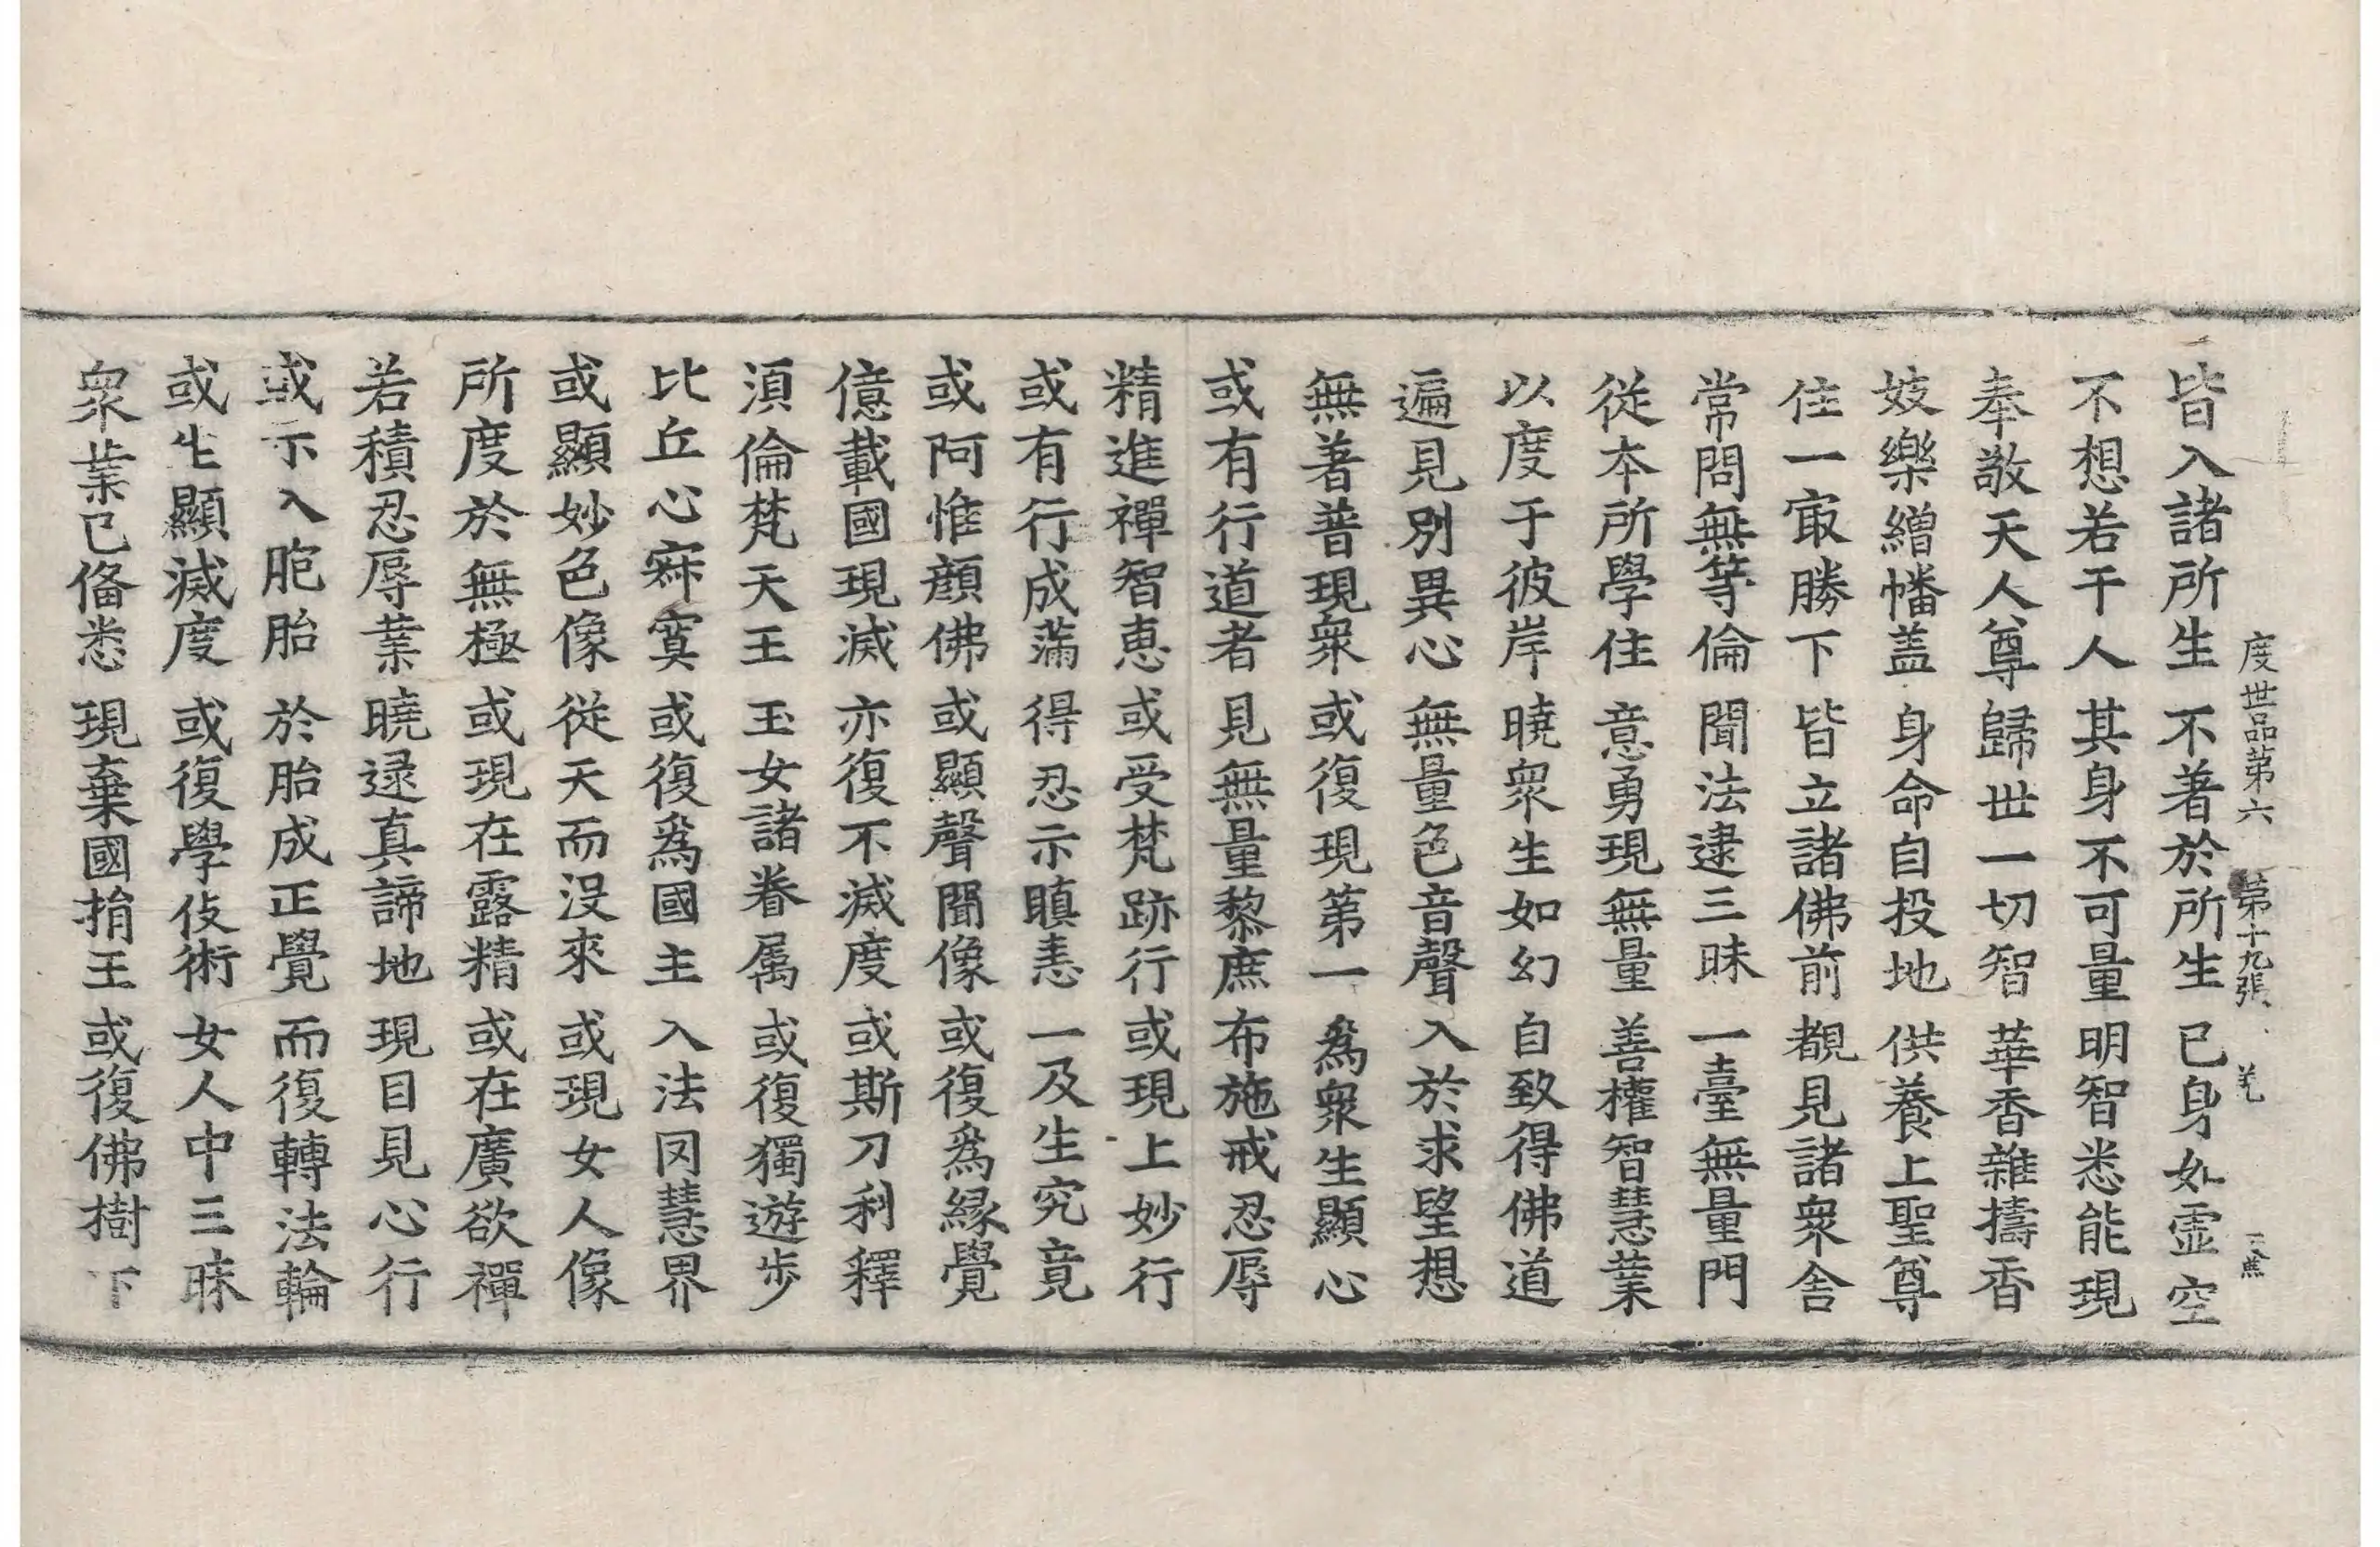 度世品第六 第十九張 羌
皆入諸所生 不著於所生 已身如虛空
不想若干人 其身不可量 明智悉能現
奉敬天人尊 歸世一切智 華香雜擣香
妓樂繒幡盖 身命自投地 供養上聖尊
住一㝡勝下 皆立諸佛前 覩見諸衆舍
常問無等倫 聞法逮三昧 一臺無量門
從本所學住 意勇現無量 善權智慧業
以度于彼岸 曉衆生如幻 自致得佛道
遍見別異心 無量色音聲 入於求望想
無著普現衆 或復現第一 爲衆生顯心
或有行道者 見無量黎庶 布施戒忍辱
精進禪智惠 或受梵跡行 或現上妙行
或有行成滿 得忍示瞋恚 一及生究竟
或阿惟顔佛 或顯聲聞像 或復爲緣覺
億載國現滅 亦復不滅度 或斯刀利釋
湏倫梵天王 玉女諸眷属 或復獨遊步
比丘心寂寞 或復爲國主 入法因慧界
或顯妙色像 從天而沒來 或現女人像
所度於無極 或現在露精 或在廣欲禪
若積忍辱業 曉逮真諦地 現目見心行
或示入胞胎 於胎成正覺 而復轉法輪
或生顯滅度 或復學伎術 女人中三昧
衆業已俻悉 現棄國捐王 或復佛樹下